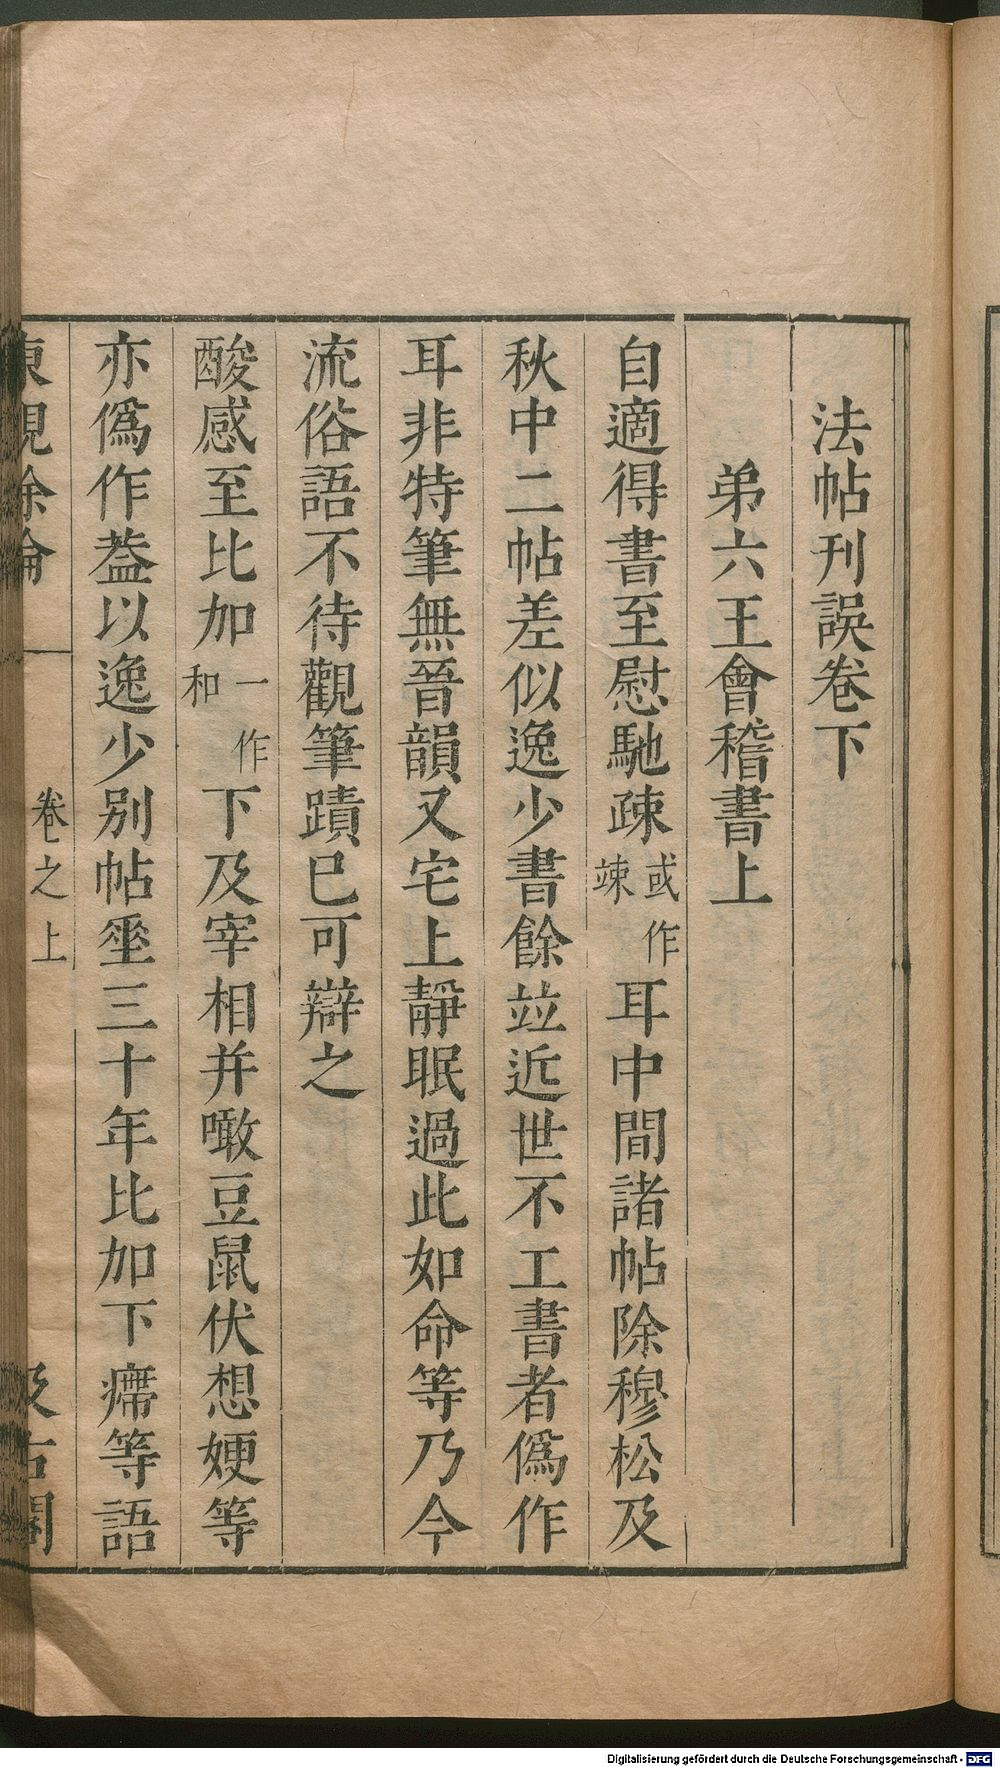 法帖刊誤卷下
弟六王會稽書上
自適得書至慰馳疎或作竦耳中間諸帖除穆松及
秋中二帖差似逸少書餘竝近世不工書者僞作
耳非特筆無晉韻又宅上靜眠過此如命等乃今
流俗語不待觀筆蹟巳可辯之
酸感至比加一作和下及宰相并噉豆鼠伏想媫等
亦僞作葢以逸少別帖埀三十年比加下㿃等語
東觀餘論
卷之上
汲古閣
Digitalisierung gefördert durch die Deutsche Forschungsgemeinschaft - DFG